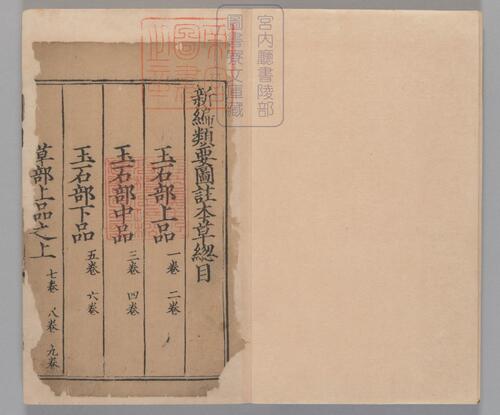 新編類要圖註本草總目
玉石部上品 一卷 二卷
玉石部中品 三卷 四卷
玉石部下品 五卷 六卷
草部上品之上 七卷 八卷 九卷
宮内廳書陵部
圖書寮文庫藏